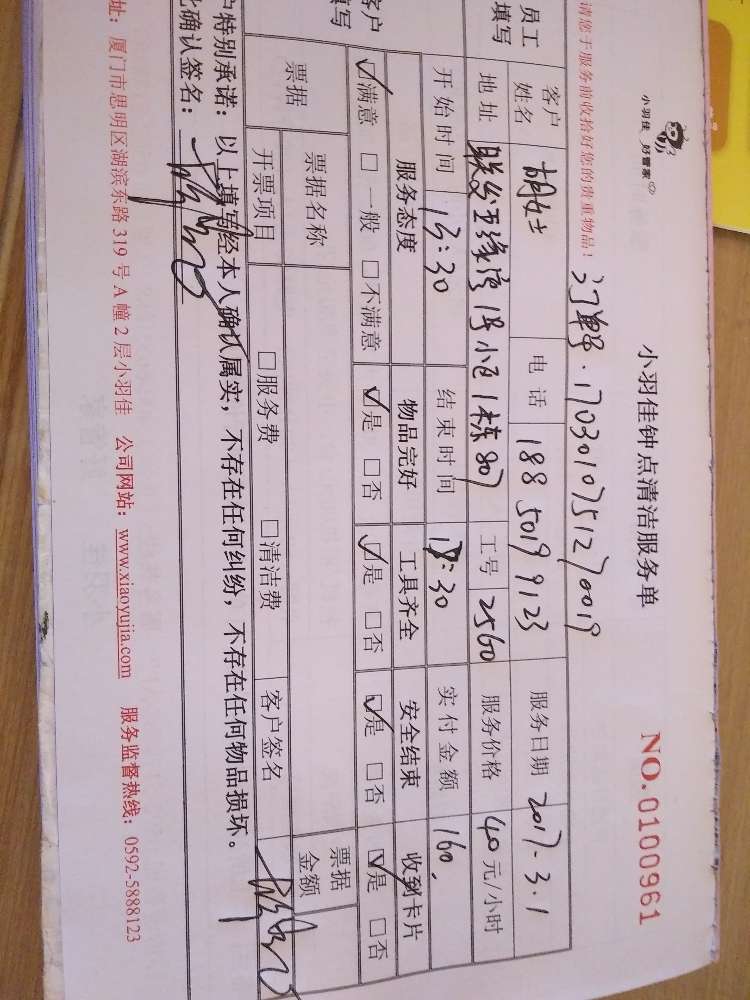 小羽佳 好管家
小羽佳钟点清洁服务单 NO.0100961
请您于服务前收拾好您的贵重物品！ 订单号.1703010751270019
员工填写 客户姓名 胡女士 电话 188 5019 9123 服务日期 2017-3.1
地址 联发五缘湾1号小区1栋807 工号 2560 服务价格 40元/小时
开始时间 13:30 结束时间 :30 实付金额 160.
客户填写 服务态度 物品完好 工具齐全 安全结束 收到卡片
☑满意 □一般 □不满意 ☑是 □否 ☑是 □否 ☑是 □否 ☑是 □否
票据 票据名称 票据金额
开票项目 □服务费 □清洁费 客户签名
户特别承诺：以上填写经本人确认属实，不存在任何纠纷，不存在任何物品损坏。
此确认签名：
址：厦门市思明区湖滨东路319号A幢2层小羽佳 公司网站：www.xiaoyujia.com 服务监督热线：0592-5888123